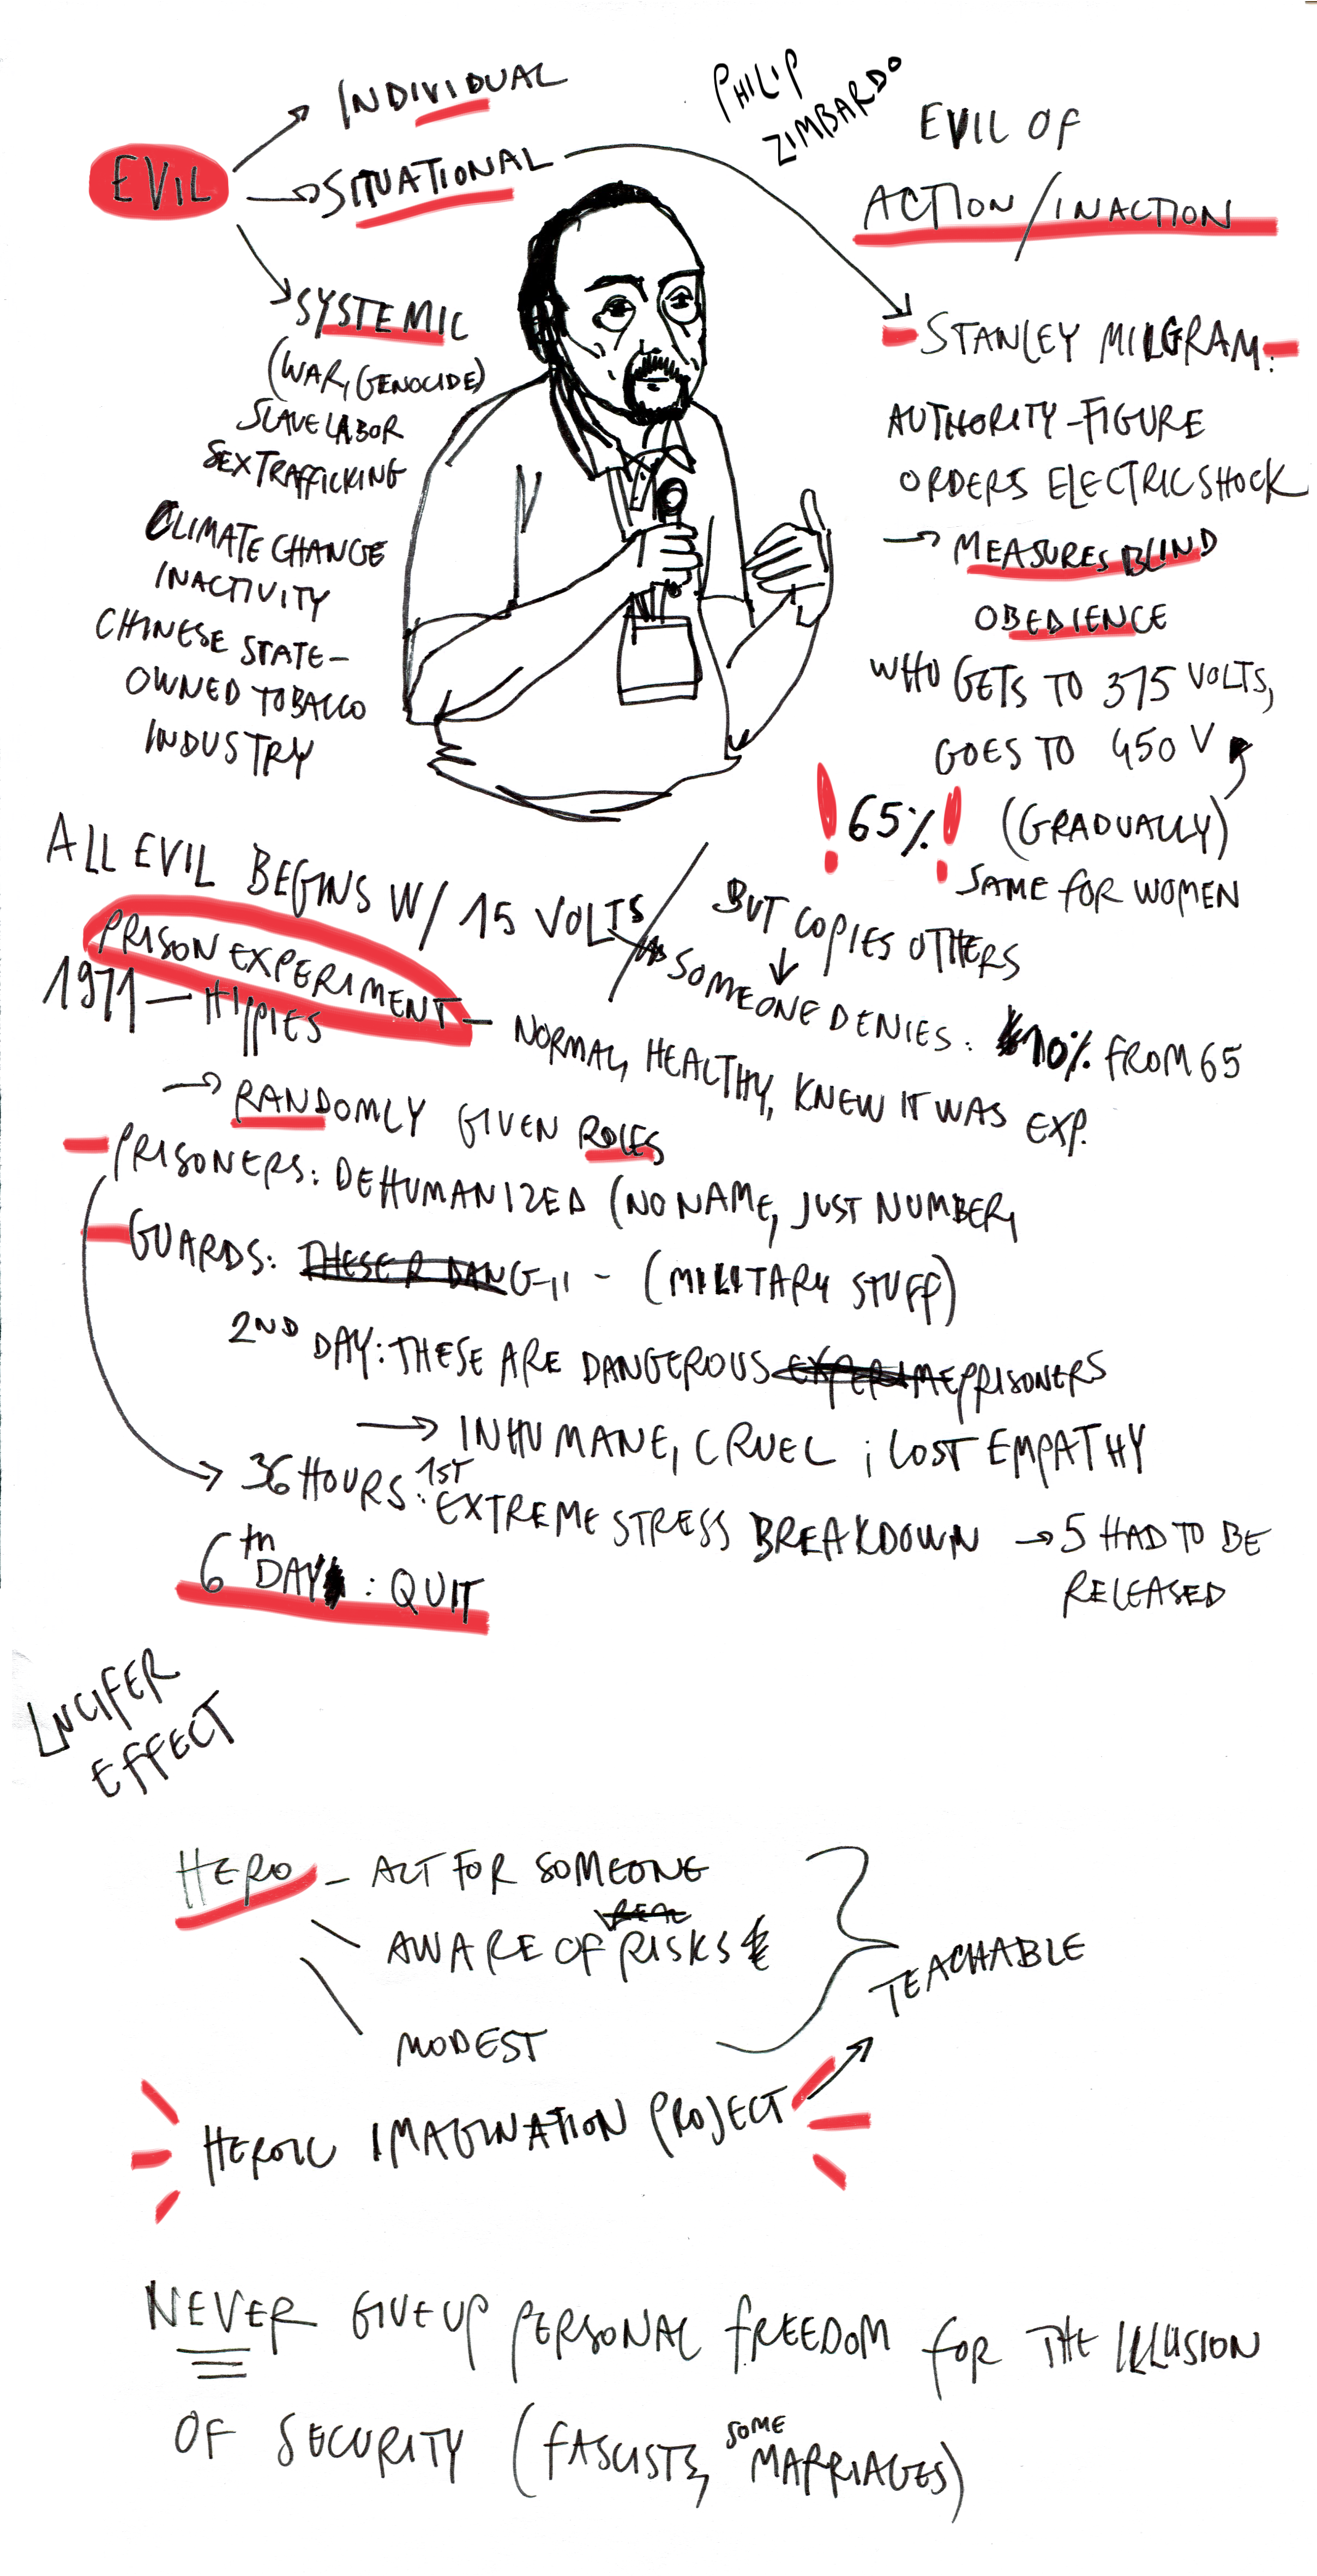 PHILIP
ZIMBARDO
EVIL
INDIVIDUAL
SITUATIONAL
SYSTEMIC
(WAR, GENOCIDE)
SLAVE LABOR
SEX TRAFFICKING
CLIMATE CHANGE
INACTIVITY
CHINESE STATE-
OWNED TOBACCO
INDUSTRY
EVIL OF
ACTION/INACTION
STANLEY MILGRAM:
AUTHORITY-FIGURE
ORDERS ELECTRIC SHOCK
→ MEASURES BLIND
OBEDIENCE
WHO GETS TO 375 VOLTS,
GOES TO 450 V
!65%! (GRADUALLY)
SAME FOR WOMEN
ALL EVIL BEGINS W/ 15 VOLTS
BUT COPIES OTHERS
SOMEONE DENIES: 10% FROM 65
PRISON EXPERIMENT - NORMAL, HEALTHY, KNEW IT WAS EXP.
1971 - HIPPIES
→ RANDOMLY GIVEN ROLES
- PRISONERS: DEHUMANIZED (NO NAME, JUST NUMBER,
- GUARDS: THESE R DANG-11 - (MILITARY STUFF)
2ND DAY: THESE ARE DANGEROUS EXPERIME PRISONERS
→ INHUMANE, CRUEL ; LOST EMPATHY
→ 36 HOURS: 1ST EXTREME STRESS BREAKDOWN → 5 HAD TO BE
RELEASED
6th DAY : QUIT
LUCIFER
EFFECT
HERO - ACT FOR SOMEONE
AWARE OF REAL RISKS
MODEST
TEACHABLE
HEROIC IMAGINATION PROJECT
NEVER GIVE UP PERSONAL FREEDOM FOR THE ILLUSION
OF SECURITY (FASCISTS, SOME MARRIAGES)